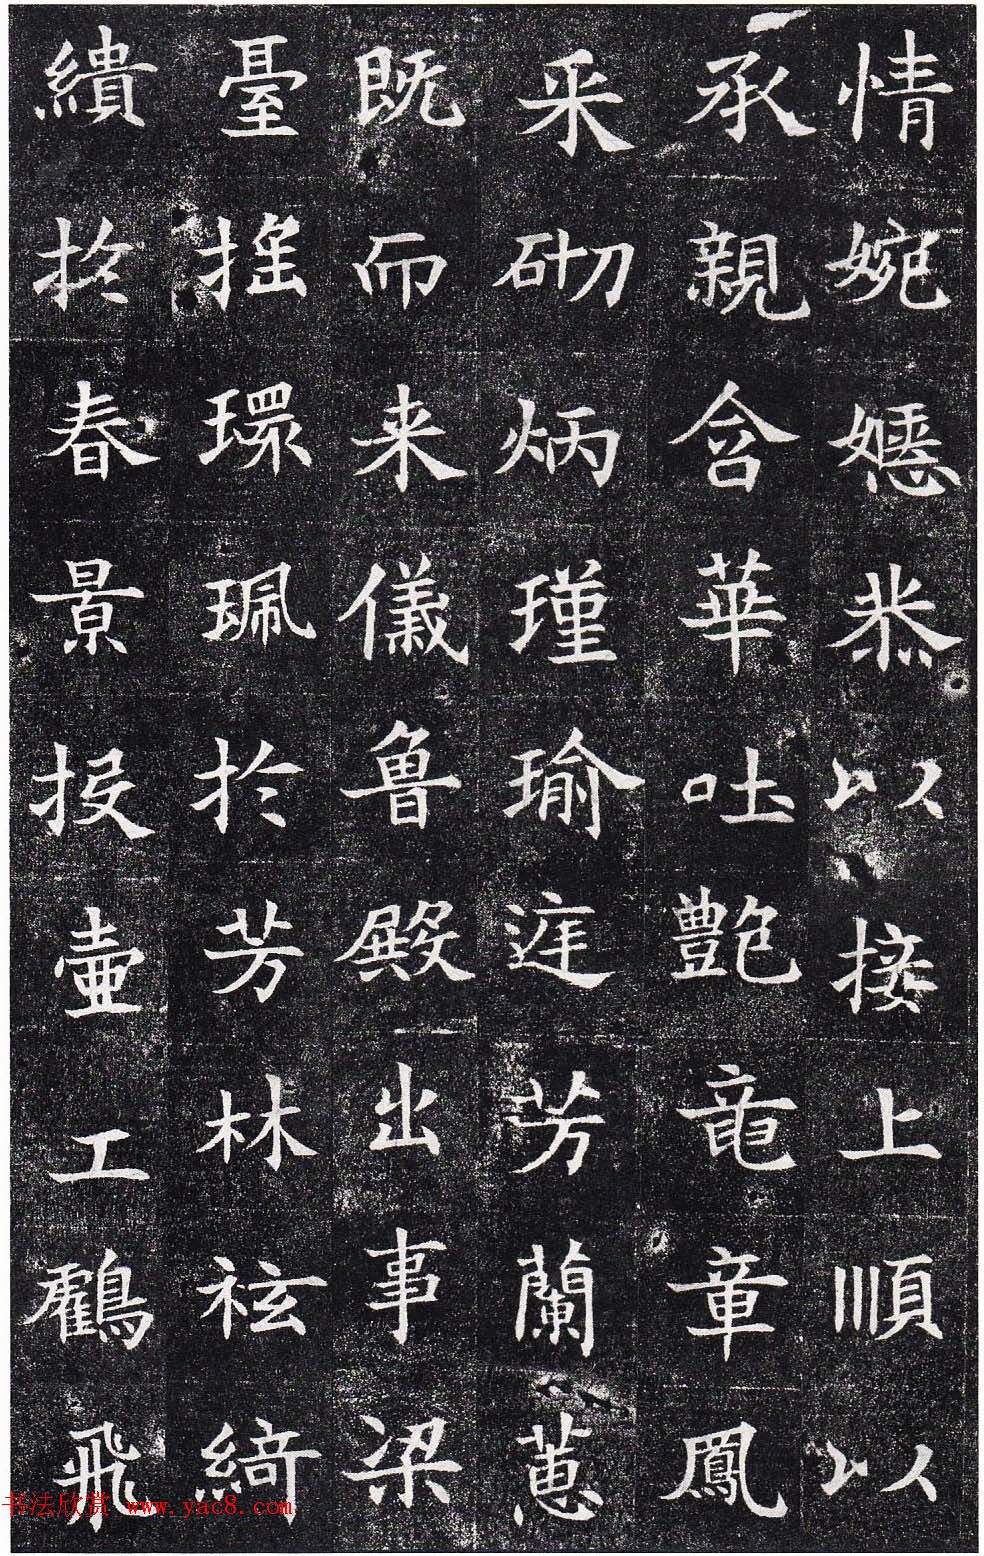 情婉嬺恭以接上順以
承親含華吐艷竜章鳳
采砌炳瑾瑜庭芳蘭蕙
既而来儀魯殿出事梁
臺搖環珮於芳林袨綺
繢於春景投壷工鸖飛
书法欣赏 www.yac8.com